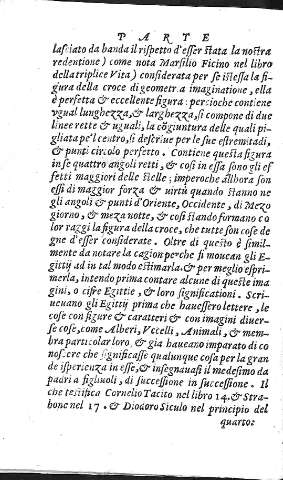 P A R T E
lasciato da banda il rispetto d'esser stata la nostra
redentione) come nota Marsilio Ficino nel libro
della triplice Vita) considerata per se istessa la fi
gura della croce di geometra imaginatione, ella
è perfetta & eccellente figura: percioche contiene
ugual lunghezza, & larghezza, si compone di due
linee rette & uguali, la cōgiuntura delle quali pi-
gliata pe'l centro, si descriue per le sue estremitadi,
& punti circolo perfetto. Contiene questa figura
in se quattro angoli retti, & cosi in essa sono gli ef
fetti maggiori delle stelle; imperoche allhora son
essi di maggior forza & uirtù quando stanno ne
gli angoli & punti d'Oriente, Occidente, di Mezo
giorno, & meza notte, & cosi stando formano co
lor raggi la figura della croce, che tutte son cose de
gne d'esser considerate. Oltre di questo è simil-
mente da notare la cagion perche si mouean gli E-
gittij ad in tal modo estimarla. & per meglio espri-
merla, intendo prima contare alcune di queste ima
gini, o cifre Egittie, & loro significationi. Scri-
ueuano gli Egittij prima che hauessero lettere, le
cose con figure & caratteri & con imagini diuer-
se cose, come Alberi, Vccelli, Animali, & mem-
bra particolar loro, & già haueano imparato di co
noscere che significasse qualunque cosa per la gran
de isperienza in esse, & insegnauasi il medesimo da
padri a figliuoli, di successione in successione. Il
che testifica Cornelio Tacito nel libro 14. & Stra-
bone nel 17. & Diodoro Siculo nel principio del
quarto: